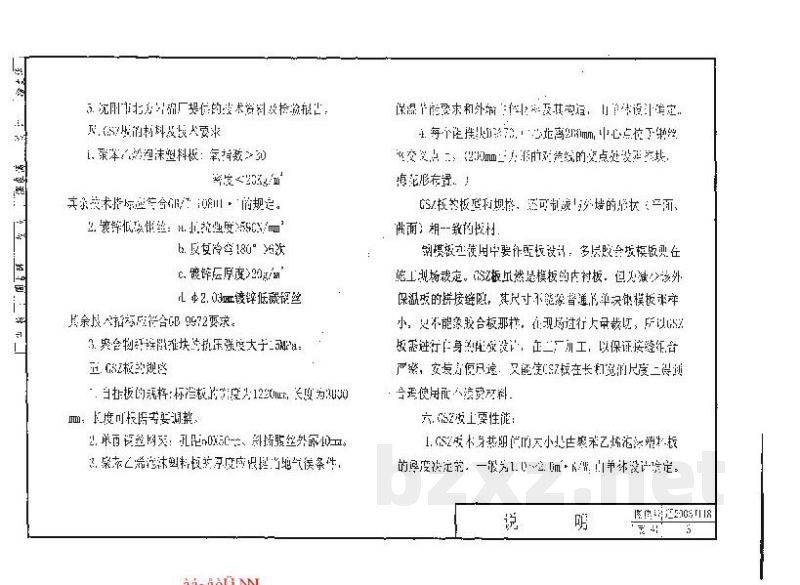 5.沈阳市北方岩棉厂提供的技术资料及检验报告。
四.GSZ板的材料及技术要求
1.聚苯乙烯泡沫塑料板：氧指数>30
密度<20Kg/m³
其余技术指标应符合GB/T 10801 的规定。
2.镀锌低碳钢丝：a.抗拉强度>590N/mm²
b.反复冷弯180°>6次
c.镀锌层厚度>20g/m²
d.φ2.03mm镀锌低碳钢丝
其余技术指标应符合GB 9972要求。
3.聚合物纤维阻推块的抗压强度大于15MPa。
五.GSZ板的规格
1.自挂板的规格:标准板的宽度为1220mm,长度为3000
mm，长度可根据需要调整。
2.单面钢丝网夹：孔距50X50 、斜插腹丝外露40mm。
3.聚苯乙烯泡沫塑料板的厚度应根据当地气候条件，
保温节能要求和外墙主体材料及其构造，由单体设计确定。
4.每个阻推块 中心距离200mm,中心点位于钢丝
网交叉点上，(200mm正方形的对角线的交点处设阻推块，
梅花形布置。)
GSZ板的板型和规格，还可制成与外墙的形状(平面、
曲面)相一致的板材。
钢模板在使用中要作配板设计，多层胶合板模板则在
施工现场裁定。GSZ板虽然是模板的内衬板，但为减少该外
保温板的拼接缝隙，其尺寸不能象普通的单块钢模板那样
小，更不能象胶合板那样，在现场进行大量裁切，所以GSZ
板需进行自身的配板设计，在工厂加工，以保证接缝组合
严密，安装方便迅速，又能使GSZ板在长和宽的尺度上得到
合理使用而不浪费材料。
六.GSZ板主要性能：
1.GSZ板本身热阻值的大小是由聚苯乙烯泡沫塑料板
的厚度决定的，一般为1.0~2.0m²·K/W,由单体设计确定。
说 明
图集号 辽2003J118
页 次 5
bzxz.net